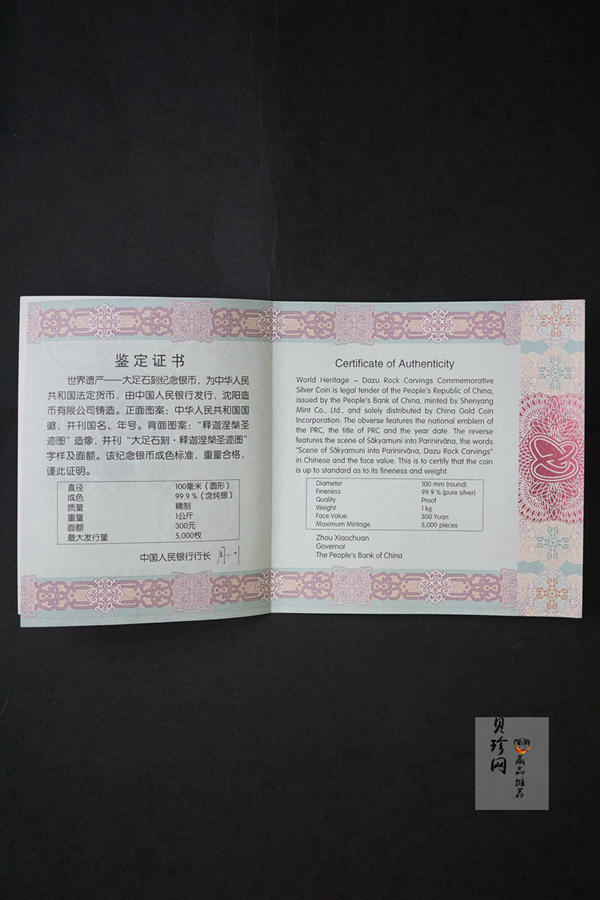 鉴定证书
世界遗产——大足石刻纪念银币，为中华人民
共和国法定货币，由中国人民银行发行，沈阳造
币有限公司铸造。正面图案：中华人民共和国国
徽，并刊国名、年号。背面图案：“释迦涅槃圣
迹图”造像，并刊“大足石刻·释迦涅槃圣迹图”
字样及面额。该纪念银币成色标准，重量合格，
谨此证明。
直径 100毫米（圆形）
成色 99.9％（含纯银）
质量 精制
重量 1公斤
面额 300元
最大发行量 5,000枚
中国人民银行行长
Certificate of Authenticity
World Heritage – Dazu Rock Carvings Commemorative
Silver Coin is legal tender of the People's Republic of China,
issued by the People's Bank of China, minted by Shenyang
Mint Co., Ltd., and solely distributed by China Gold Coin
Incorporation. The obverse features the national emblem of
the PRC, the title of PRC and the year date. The reverse
features the scene of Sākyamuni into Parinirvāna, the words
"Scene of Sākyamuni into Parinirvāna, Dazu Rock Carvings"
in Chinese and the face value. This is to certify that the coin
is up to standard as to its fineness and weight.
Diameter 100 mm (round)
Fineness 99.9 % (pure silver)
Quality Proof
Weight 1 kg
Face Value 300 Yuan
Maximum Mintage 5,000 pieces
Zhou Xiaochuan
Governor
The People's Bank of China
贝珍网
藏品推荐